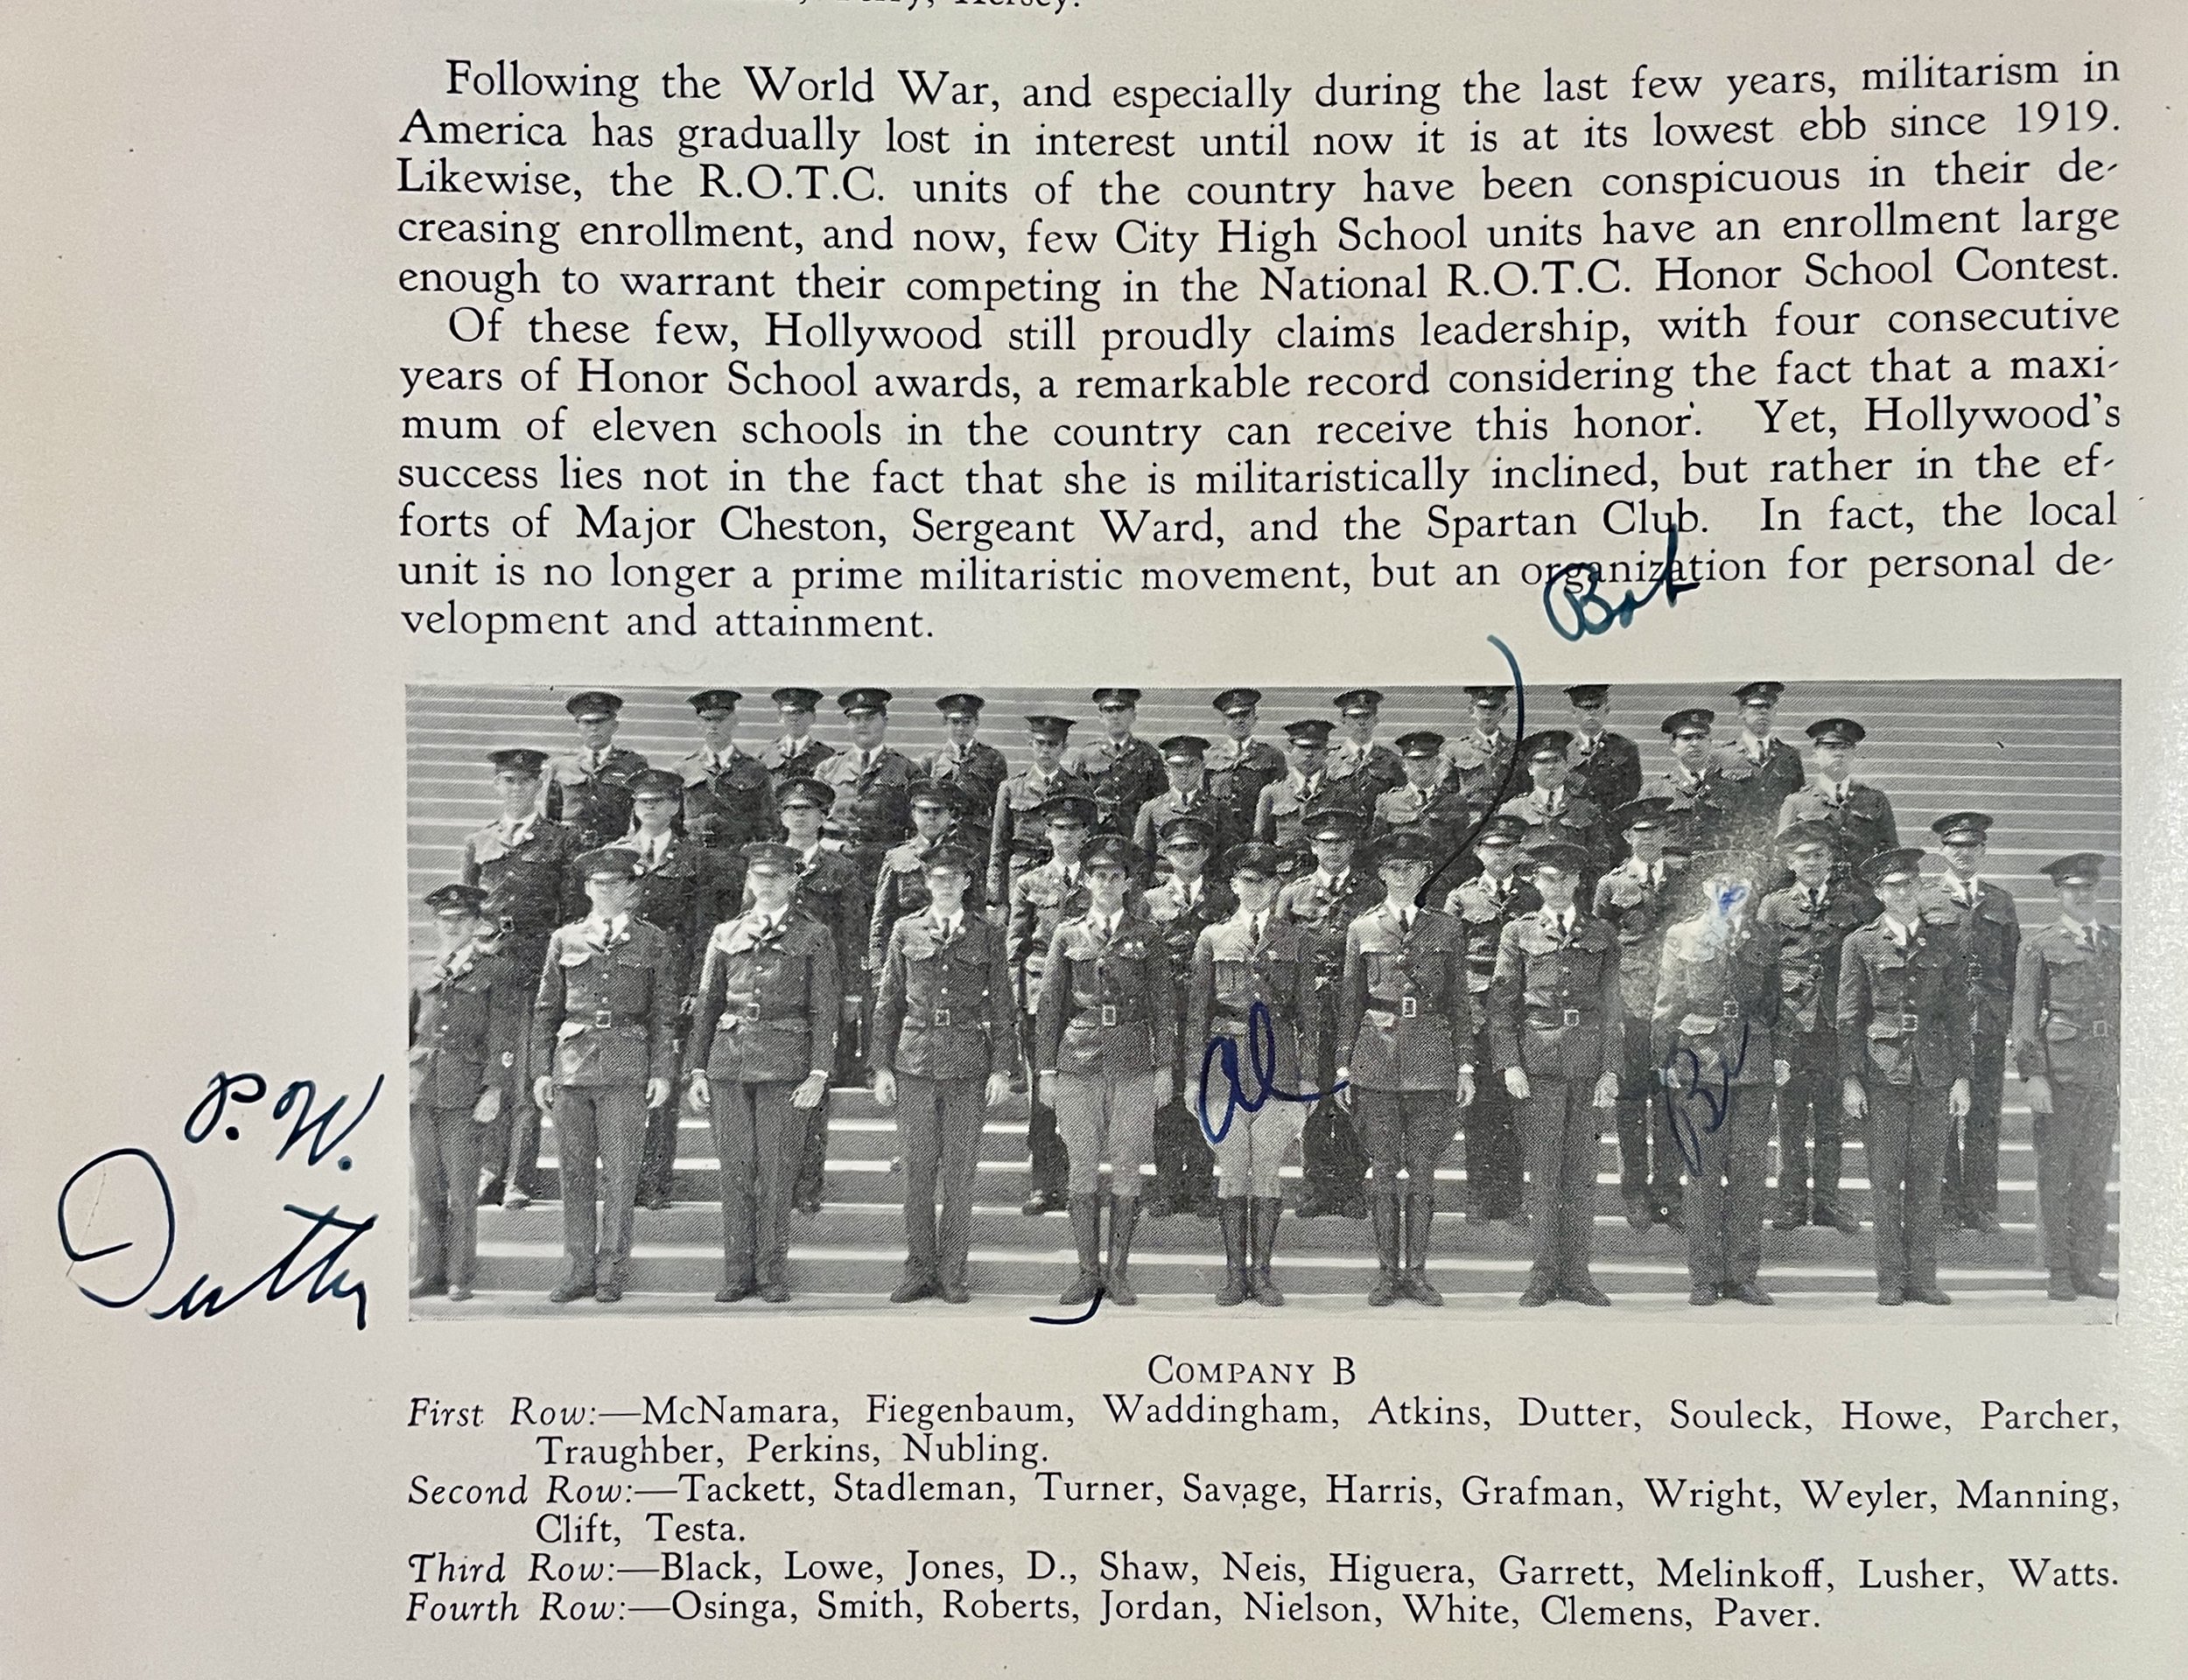 Following the World War, and especially during the last few years, militarism in
America has gradually lost in interest until now it is at its lowest ebb since 1919.
Likewise, the R.O.T.C. units of the country have been conspicuous in their de-
creasing enrollment, and now, few City High School units have an enrollment large
enough to warrant their competing in the National R.O.T.C. Honor School Contest.
Of these few, Hollywood still proudly claims leadership, with four consecutive
years of Honor School awards, a remarkable record considering the fact that a maxi-
mum of eleven schools in the country can receive this honor. Yet, Hollywood's
success lies not in the fact that she is militaristically inclined, but rather in the ef-
forts of Major Cheston, Sergeant Ward, and the Spartan Club. In fact, the local
unit is no longer a prime militaristic movement, but an organization for personal de-
velopment and attainment.
Bob
Al
P.W.
Dutty
COMPANY B
First Row:—McNamara, Fiegenbaum, Waddingham, Atkins, Dutter, Souleck, Howe, Parcher,
Traughber, Perkins, Nubling.
Second Row:—Tackett, Stadleman, Turner, Savage, Harris, Grafman, Wright, Weyler, Manning,
Clift, Testa.
Third Row:—Black, Lowe, Jones, D., Shaw, Neis, Higuera, Garrett, Melinkoff, Lusher, Watts.
Fourth Row:—Osinga, Smith, Roberts, Jordan, Nielson, White, Clemens, Paver.